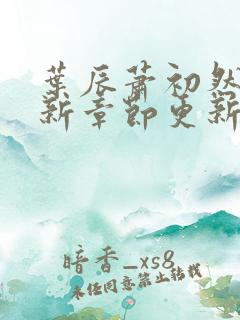 葉辰蕭初然
新章節更新
暗香_xs8
未經同意禁止轉載